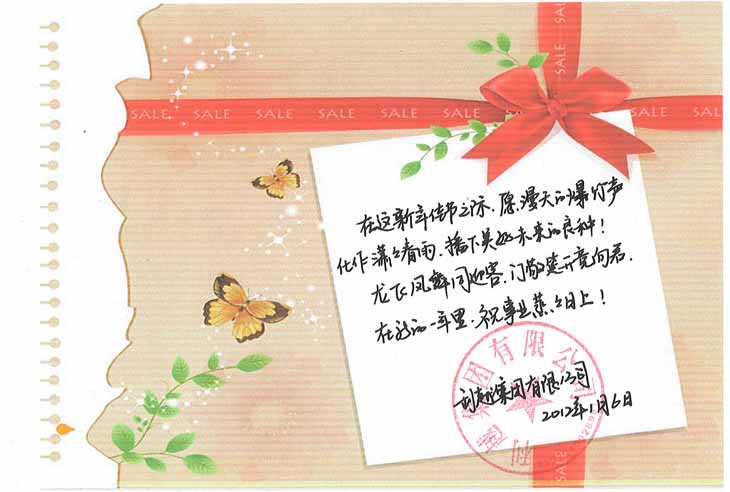 SALE SALE SALE SALE SALE SALE SALE
SALE
SALE
在这新年佳节之际、愿漫天的爆竹声
化作潇潇春雨、播下美好未来的良种！
龙飞凤舞同迎客、门敞楚开竞向君.
在新的一年里、祝事业蒸蒸日上！
集团有限公司
2012年1月6日
集团有限公司
SALE